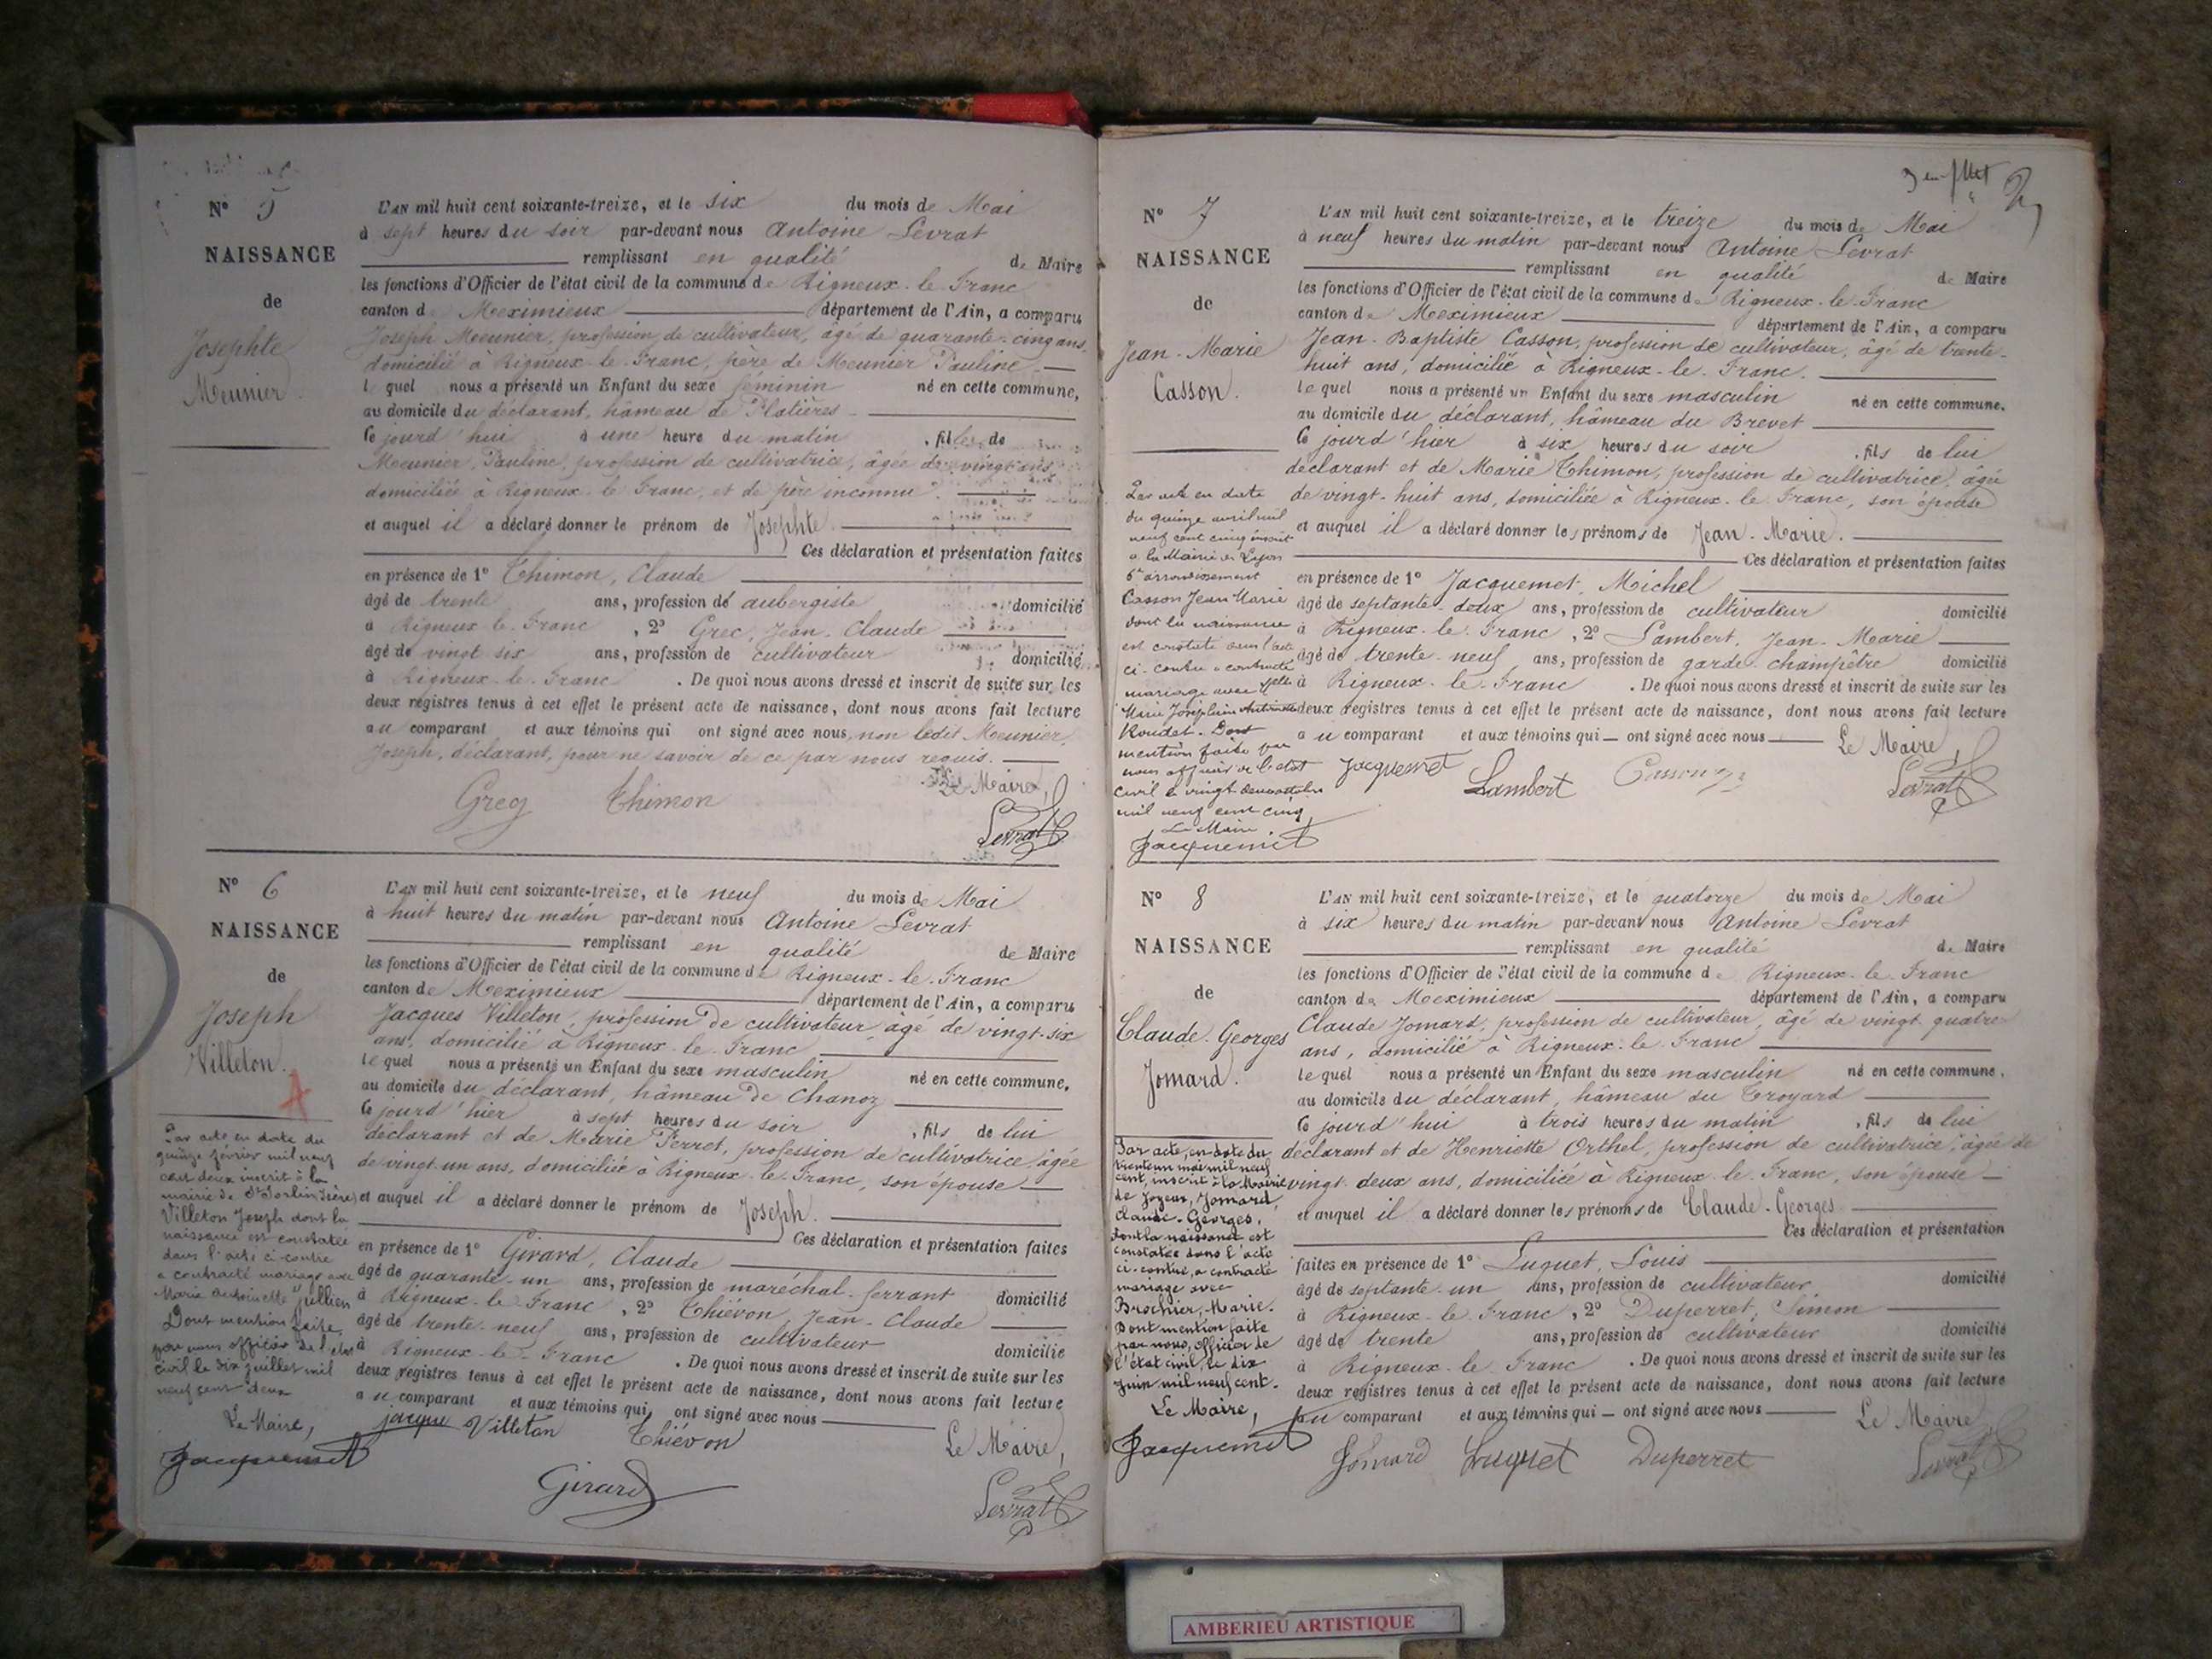 N° 5
NAISSANCE
de
Josephte
Meunier.
L'AN mil huit cent soixante-treize, et le six du mois de Mai
à sept heures du soir par-devant nous Antoine Levrat
remplissant en qualité de Maire
les fonctions d'Officier de l'état civil de la commune de Rigneux-le-Franc
canton de Meximieux département de l'Ain, a comparu
Joseph Meunier, profession de cultivateur, âgé de quarante-cinq ans,
domicilié à Rigneux-le-Franc, père de Meunier Pauline
lequel nous a présenté un Enfant du sexe féminin né en cette commune,
au domicile du déclarant, hâmeau de Platières
ce jourd'hui à une heure du matin, fille de
Meunier, Pauline, profession de cultivatrice, âgée de vingt ans,
domiciliée à Rigneux-le-Franc, et de père inconnu.
et auquel il a déclaré donner le prénom de Josephte.
Ces déclaration et présentation faites
en présence de 1° Thimon, Claude
âgé de trente ans, profession de aubergiste domicilié
à Rigneux-le-Franc, 2° Grec, Jean-Claude
âgé de vingt six ans, profession de cultivateur domicilié
à Rigneux-le-Franc. De quoi nous avons dressé et inscrit de suite sur les
deux registres tenus à cet effet le présent acte de naissance, dont nous avons fait lecture
au comparant et aux témoins qui ont signé avec nous, non ledit Meunier,
Joseph, déclarant, pour ne savoir de ce par nous requis.
Le Maire,
Greg Thimon
Levrat
N° 6
NAISSANCE
de
Joseph
Villeton.
A
Par acte en date du
quinze février mil neuf
cent deux inscrit à la
mairie de St Sorlin Isère,
Villeton Joseph dont la
naissance est constatée
dans l'acte ci-contre
a contracté mariage avec
Marie Antoinette Jullien
Dont mention faite
par nous officier de l'état
civil le dix juillet mil
neuf cent deux
Le Maire,
Jacquemet
L'AN mil huit cent soixante-treize, et le neuf du mois de Mai
à huit heures du matin par-devant nous Antoine Levrat
remplissant en qualité de Maire
les fonctions d'Officier de l'état civil de la commune de Rigneux-le-Franc
canton de Meximieux département de l'Ain, a comparu
Jacques Villeton, profession de cultivateur, âgé de vingt-six
ans, domicilié à Rigneux-le-Franc
lequel nous a présenté un Enfant du sexe masculin né en cette commune,
au domicile du déclarant, hâmeau de Chanoz
ce jourd'hier à sept heures du soir, fils de lui
déclarant et de Marie Perret, profession de cultivatrice, âgée
de vingt-un ans, domiciliée à Rigneux-le-Franc, son épouse
et auquel il a déclaré donner le prénom de Joseph.
Ces déclaration et présentation faites
en présence de 1° Girard, Claude
âgé de quarante-un ans, profession de maréchal-ferrant domicilié
à Rigneux-le-Franc, 2° Thiévon, Jean-Claude
âgé de trente-neuf ans, profession de cultivateur domicilié
à Rigneux-le-Franc. De quoi nous avons dressé et inscrit de suite sur les
deux registres tenus à cet effet le présent acte de naissance, dont nous avons fait lecture
au comparant et aux témoins qui ont signé avec nous
jacque Villeton Thiévon Le Maire,
Girard Levrat
3
N° 7
NAISSANCE
de
Jean-Marie
Casson.
Par acte en date
du quinze avril mil
neuf cent cinq inscrit
à la Mairie de Lyon
6e arrondissement
Casson Jean Marie
dont la naissance
est constatée dans l'acte
ci-contre a contracté
mariage avec Melle
Marie Joséphine Antoinette
Roudet. Dont
mention faite par
nous officier de l'état
civil le vingt
mil neuf cent cinq
Le Maire,
Jacquemet
L'AN mil huit cent soixante-treize, et le treize du mois de Mai
à neuf heures du matin par-devant nous Antoine Levrat
remplissant en qualité de Maire
les fonctions d'Officier de l'état civil de la commune de Rigneux-le-Franc
canton de Meximieux département de l'Ain, a comparu
Jean-Baptiste Casson, profession de cultivateur, âgé de trente-
huit ans, domicilié à Rigneux-le-Franc.
lequel nous a présenté un Enfant du sexe masculin né en cette commune.
au domicile du déclarant, hâmeau du Brevet
ce jourd'hier à six heures du soir, fils de lui
déclarant et de Marie Thimon, profession de cultivatrice, âgée
de vingt-huit ans, domiciliée à Rigneux-le-Franc, son épouse
et auquel il a déclaré donner les prénoms de Jean-Marie.
Ces déclaration et présentation faites
en présence de 1° Jacquemet, Michel
âgé de septante-deux ans, profession de cultivateur domicilié
à Rigneux-le-Franc, 2° Lambert, Jean-Marie
âgé de trente-neuf ans, profession de garde-champêtre domicilié
à Rigneux-le-Franc. De quoi nous avons dressé et inscrit de suite sur les
deux registres tenus à cet effet le présent acte de naissance, dont nous avons fait lecture
au comparant et aux témoins qui — ont signé avec nous Le Maire
Jacquemet Lambert Casson Levrat
N° 8
NAISSANCE
de
Claude-Georges
Jomard.
Par acte, en date du
trente un mai mil neuf
cent, inscrit à la Mairie
de Joyeux, Jomard,
Claude-Georges,
dont la naissance est
constatée dans l'acte
ci-contre, a contracté
mariage avec
Brochier, Marie.
Dont mention faite
par nous, officier de
l'état civil, le dix
juin mil neuf cent.
Le Maire,
Jacquemet
L'AN mil huit cent soixante-treize, et le quatorze du mois de Mai
à six heures du matin par-devant nous Antoine Levrat
remplissant en qualité de Maire
les fonctions d'Officier de l'état civil de la commune de Rigneux-le-Franc
canton de Meximieux département de l'Ain, a comparu
Claude Jomard, profession de cultivateur, âgé de vingt-quatre
ans, domicilié à Rigneux-le-Franc
lequel nous a présenté un Enfant du sexe masculin né en cette commune.
au domicile du déclarant, hâmeau du Troyard
ce jourd'hui à trois heures du matin, fils de lui
déclarant et de Henriette Orthel, profession de cultivatrice, âgée de
vingt-deux ans, domiciliée à Rigneux-le-Franc, son épouse
et auquel il a déclaré donner les prénoms de Claude-Georges
Ces déclaration et présentation
faites en présence de 1° Luquet, Louis
âgé de septante-un ans, profession de cultivateur domicilié
à Rigneux-le-Franc, 2° Duperret, Simon
âgé de trente ans, profession de cultivateur domicilié
à Rigneux-le-Franc. De quoi nous avons dressé et inscrit de suite sur les
deux registres tenus à cet effet le présent acte de naissance, dont nous avons fait lecture
au comparant et aux témoins qui — ont signé avec nous Le Maire
Jomard Luquet Duperret Levrat
AMBERIEU ARTISTIQUE